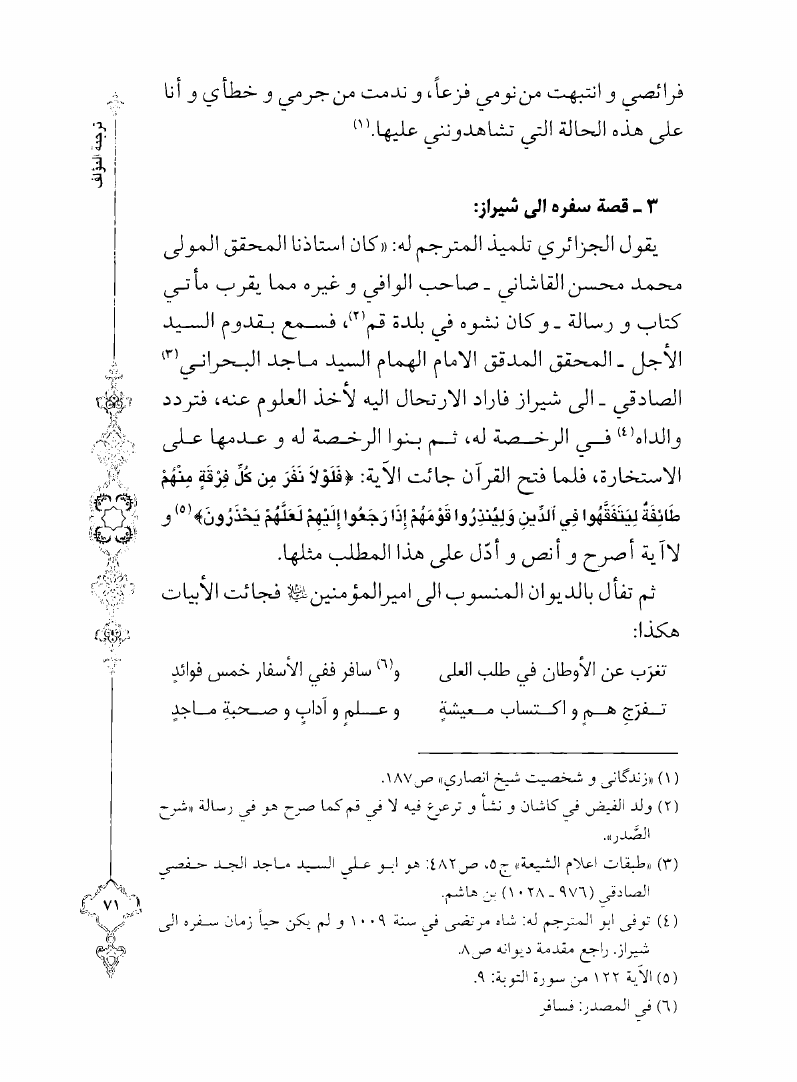 ترجمة المؤلف
فرائصي و انتبهت من نومي فزعاً، و ندمت من جرمي و خطأي و أنا
على هذه الحالة التي تشاهدونني عليها.(١)
٣ ـ قصة سفره الى شيراز:
يقول الجزائري تلميذ المترجم له: «كان استاذنا المحقق المولى
محمد محسن القاشاني ـ صاحب الوافي و غيره مما يقرب مأتي
كتاب و رسالة ـ و كان نشوه في بلدة قم(٢)، فسمع بقدوم السيد
الأجل ـ المحقق المدقق الامام الهمام السيد ماجد البحراني(٣)
الصادقي ـ الى شيراز فاراد الارتحال اليه لأخذ العلوم عنه، فتردد
والداه(٤) في الرخصة له، ثم بنوا الرخصة له و عدمها على
الاستخارة، فلما فتح القرآن جائت الآية: ﴿فَلَوْلاَ نَفَرَ مِن كُلِّ فِرْقَةٍ مِنْهُمْ
طَائِفَةٌ لِيَتَفَقَّهُوا فِي ٱلدِّينِ وَلِيُنْذِرُوا قَوْمَهُمْ إِذَا رَجَعُوا إِلَيْهِمْ لَعَلَّهُمْ يَحْذَرُونَ﴾(٥) و
لاآية أصرح و أنص و أدّل على هذا المطلب مثلها.
ثم تفأل بالديوان المنسوب الى اميرالمؤمنين فجائت الأبيات
هكذا:
تغرّب عن الأوطان في طلب العلى و(٦) سافر ففي الأسفار خمس فوائدٍ
تفرّج همٍ و اكتساب معيشةٍ و علمٍ و آدابٍ و صحبةِ ماجدٍ
(١) «زندگانى و شخصيت شيخ انصاري» ص١٨٧.
(٢) ولد الفيض في كاشان و نشأ و ترعرع فيه لا في قم كما صرح هو في رسالة «شرح
الصَّدر».
(٣) «طبقات اعلام الشيعة» ج٥، ص٤٨٢: هو ابو علي السيد ماجد الجد حفصي
الصادقي (٩٧٦ ـ ١٠٢٨) بن هاشم.
(٤) توفى ابو المترجم له: شاه مرتضى في سنة ١٠٠٩ و لم يكن حياً زمان سفره الى
شيراز. راجع مقدمة ديوانه ص٨.
(٥) الآية ١٢٢ من سورة التوبة: ٩.
(٦) في المصدر: فسافر
٧١